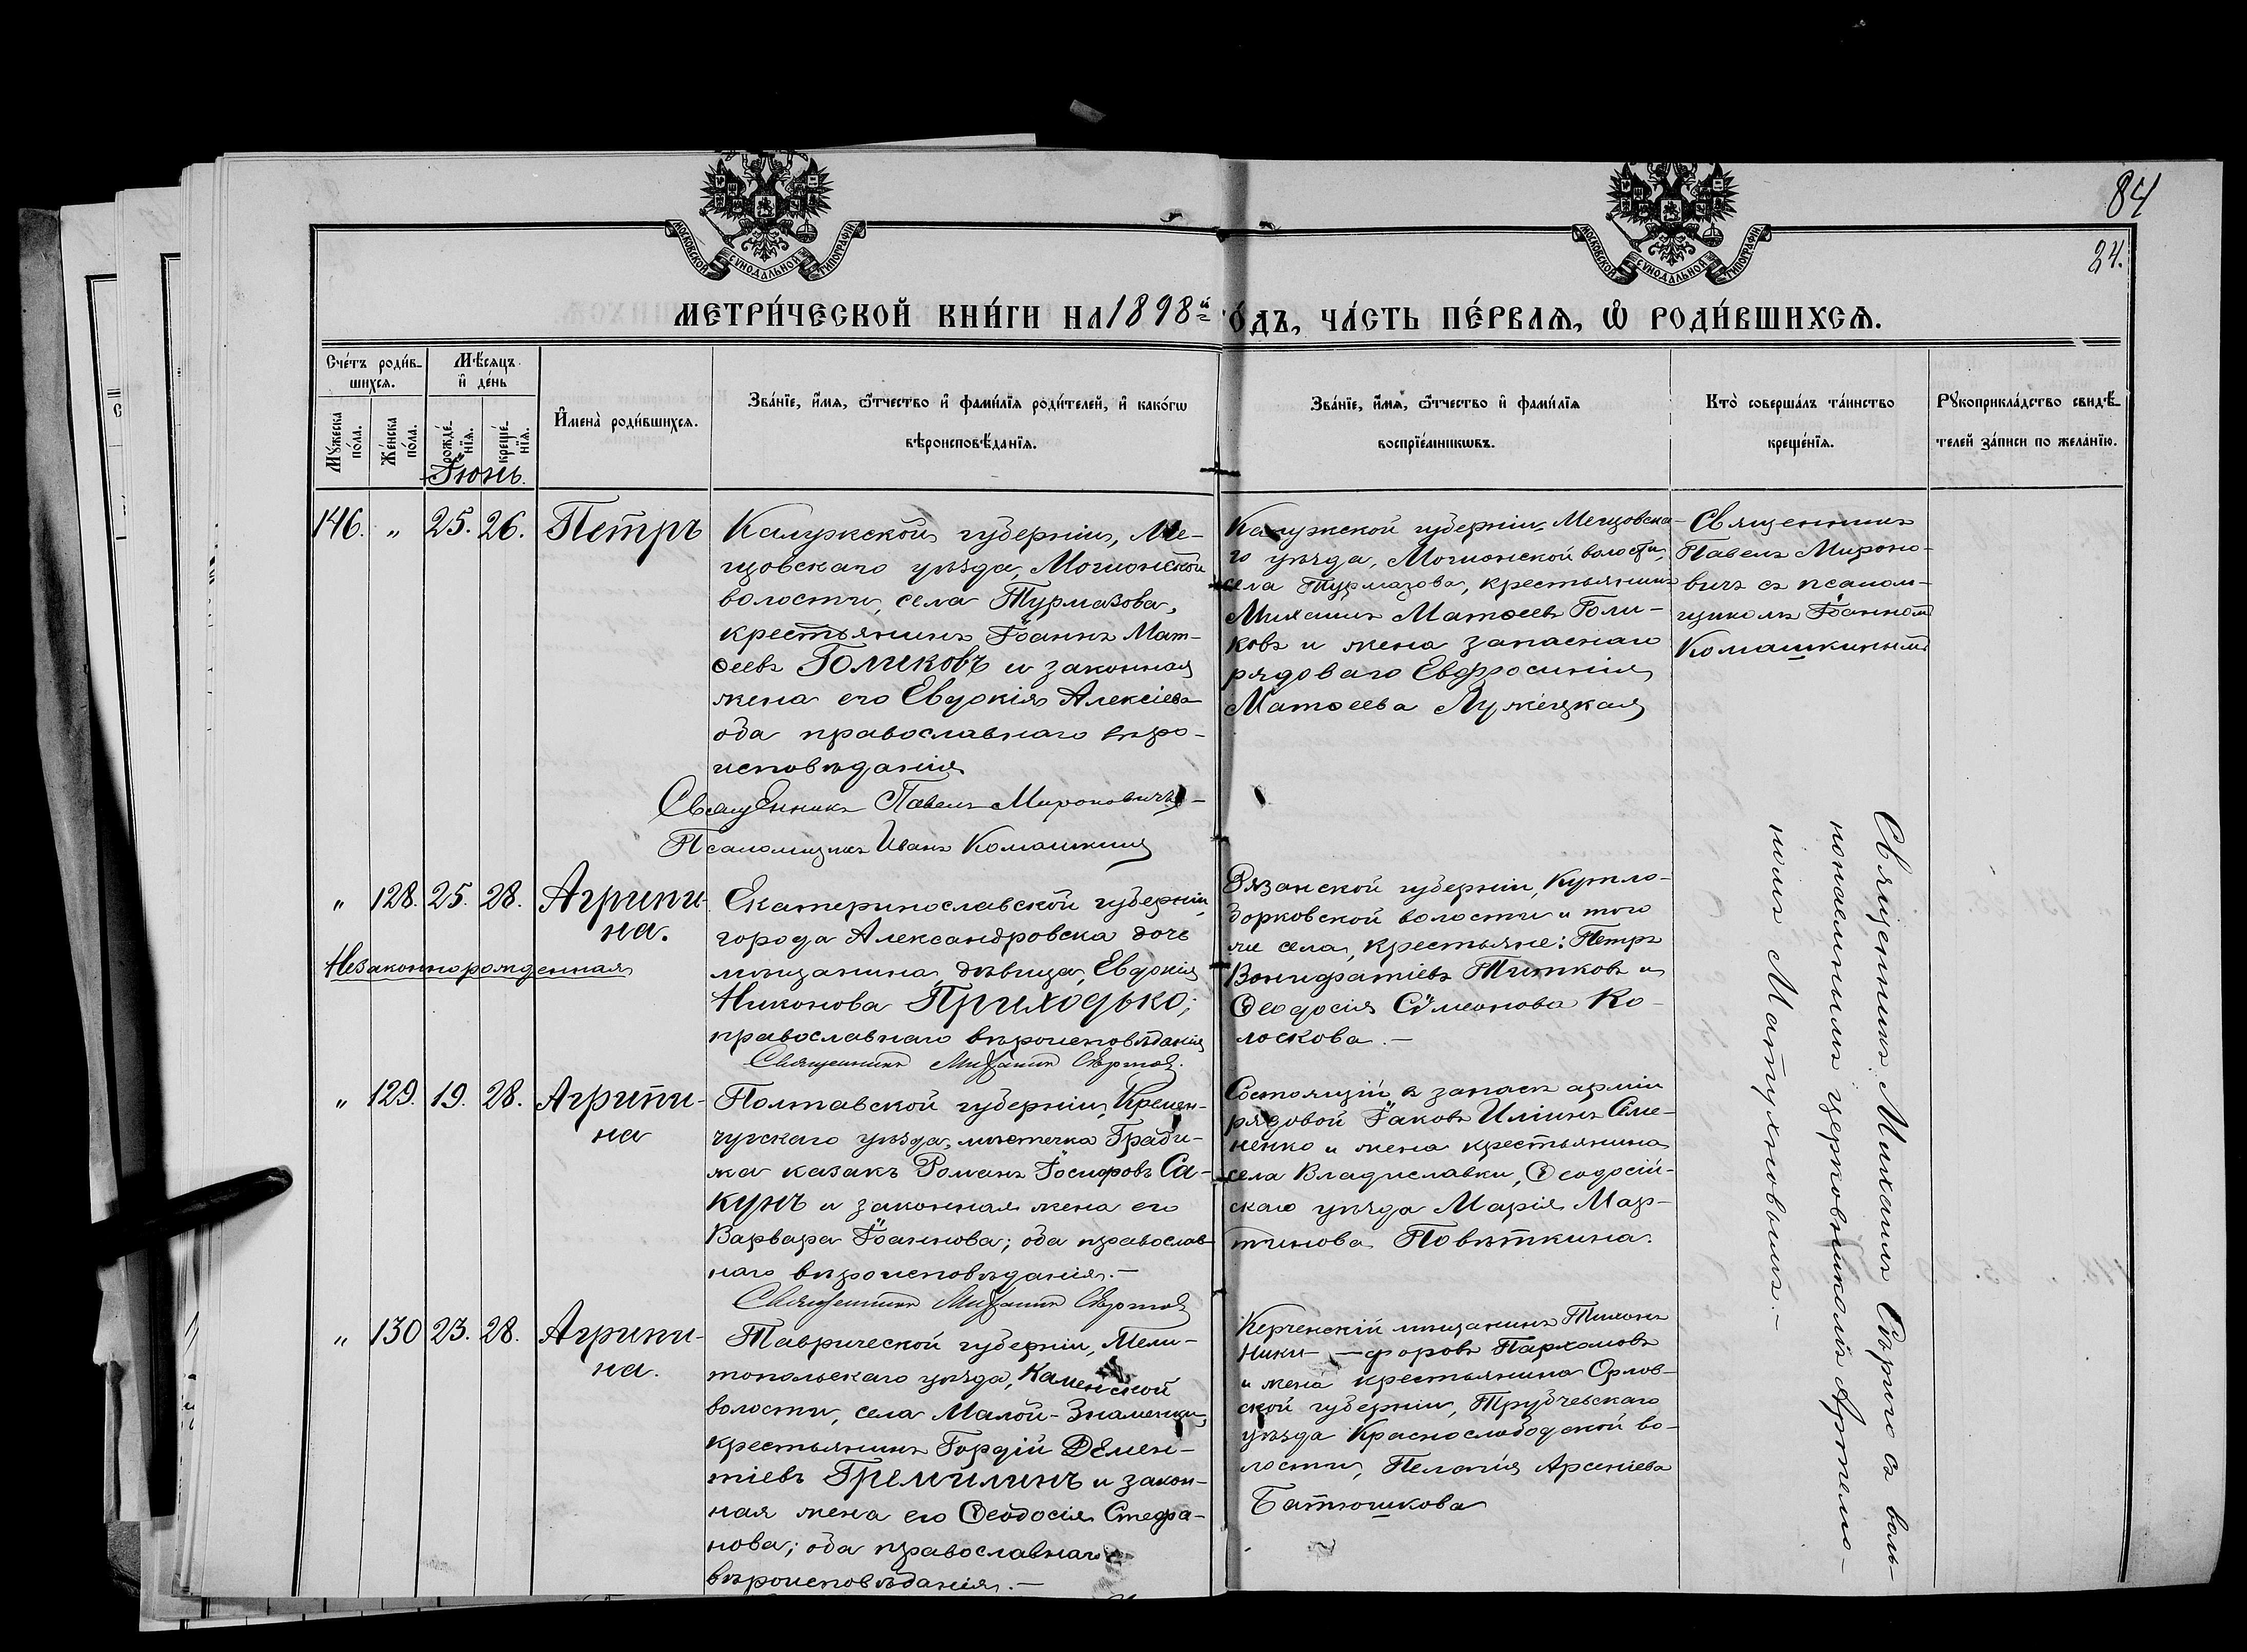 84
24.
МОСКОВСКОЙ СѴНОДАЛЬНОЙ ТИПОГРАФІИ
МОСКОВСКОЙ СѴНОДАЛЬНОЙ ТИПОГРАФІИ
МЕТРИ́ЧЕСКОЙ КНИ́ГИ НА 1898й о́дъ, ЧА́СТЬ ПЕ́РВАѦ, Ѡ҆ РОДИ́ВШИХСѦ.
Сче́тъ роди́в-
шихсѧ.
Мꙋ́жеска по́ла.
Же́нска по́ла.
Мѣ́сѧцъ
и҆ де́нь
рожде́-
нїѧ.
креще́-
нїѧ.
Іюнь.
И҆мена̀ роди́вшихсѧ.
Зва́нїе, и҆́мѧ, ѻ҆́тчество и҆ фами́лїѧ роди́телей, и҆ како́гѡ
вѣроисповѣ́данїѧ.
Зва́нїе, и҆́мѧ, ѻ҆́тчество и҆ фами́лїѧ
воспрїе́мникѡвъ.
Кто̀ соверша́лъ та́инство
креще́нїѧ.
Рꙋкоприкла́дство свидѣ́-
телей за́писи по жела́нїю.
146. „ 25. 26. Петръ
Калужской губерніи, Ме-
щовскаго уѣзда, Могионской
волости, села Турмазова,
крестьянинъ Іоаннъ Мат-
ѳеевъ Голиковъ и законная
жена его Евдокія Алексіева
оба православнаго вѣро-
исповѣданія
Священникъ Павелъ Мироновичъ
Псаломщикъ Иванъ Комашкинъ
Калужской губерніи, Мещовска-
го уѣзда, Могионской волости,
села Турмазова, крестьянинъ
Михаилъ Матѳеевъ Голи-
ковъ и жена запаснаго
рядоваго Евфросинія
Матѳеева Лужецкая
Священникъ
Павелъ Мироно-
вичъ съ псалом-
щикомъ Іоанномъ
Комашкинымъ
„ 128. 25. 28. Агрипи-
на.
Незаконнорожденная
Екатеринославской губерніи,
города Александровска дочь
мѣщанина, дѣвица, Евдокія
Никонова Приходько;
православнаго вѣроисповѣданія
Священникъ Михаилъ Сѣрго
Рязанской губерніи,
волости и того
же села, крестьяне: Петръ
Вонифатіевъ Титковъ и
Ѳеодосія Сѵмеонова Ко-
лоскова. —
„ 129. 19. 28. Агрипи-
на
Полтавской губерніи, Кремен-
чугскаго уѣзда, мѣстечка Гради-
жа казакъ Романъ Іосифовъ Са-
кунъ и законная жена его
Варвара Іоаннова; оба православ-
наго вѣроисповѣданія. —
Священникъ Михаилъ Сѣрго
Состоящій въ запасѣ арміи
рядовой Іаковъ Иліинъ Семе-
ненко и жена крестьянина
села Владиславки, Ѳеодосій-
скаго уѣзда Марія Мар-
тинова Повѣткина.
„ 130 23. 28. Агрипи-
на.
Таврической губерніи, Мели-
топольскаго уѣзда, Каменской
волости, села Малой-Знаменки,
крестьянинъ Гордій Демен-
тіевъ Гремилинъ и закон-
ная жена его Ѳеодосія Стефа-
нова; оба православнаго
вѣроисповѣданія. —
Керченскій мѣщанинъ Тихонъ
Ники- — форовъ Пархомовъ
и жена крестьянина Орлов-
ской губерніи, Трубчевскаго
уѣзда Краснослободской во-
лости, Пелагія Арсеніева
Батюшкова
Священникъ Михаилъ Сѣрго съ воль-
нонаемнымъ церковникомъ Артемо-
номъ Матухновымъ. —